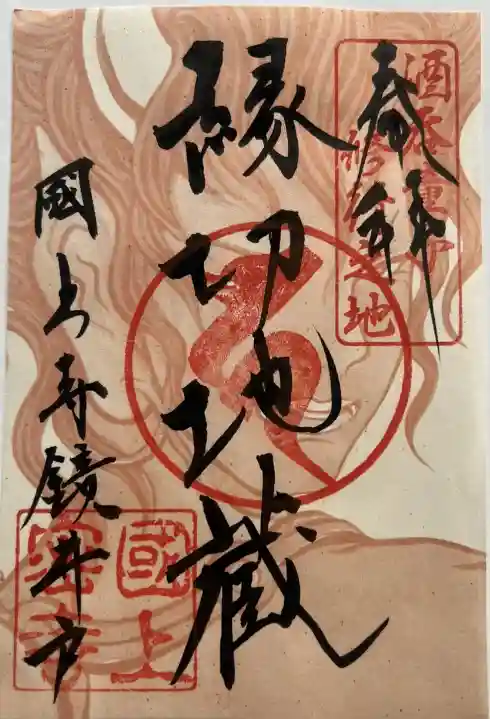 奉拝
酒呑童子
之地
縁切地蔵
國上寺鏡井戸
國上
寺